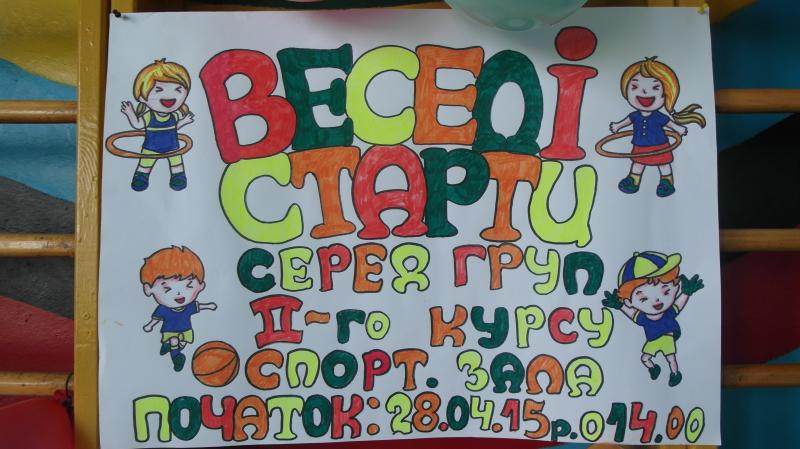 ВЕСЕЛІ
СТАРТИ
СЕРЕД ГРУП
ІІ-го КУРСУ
СПОРТ. ЗАЛА
ПОЧАТОК: 28.04.15р. О 14.00